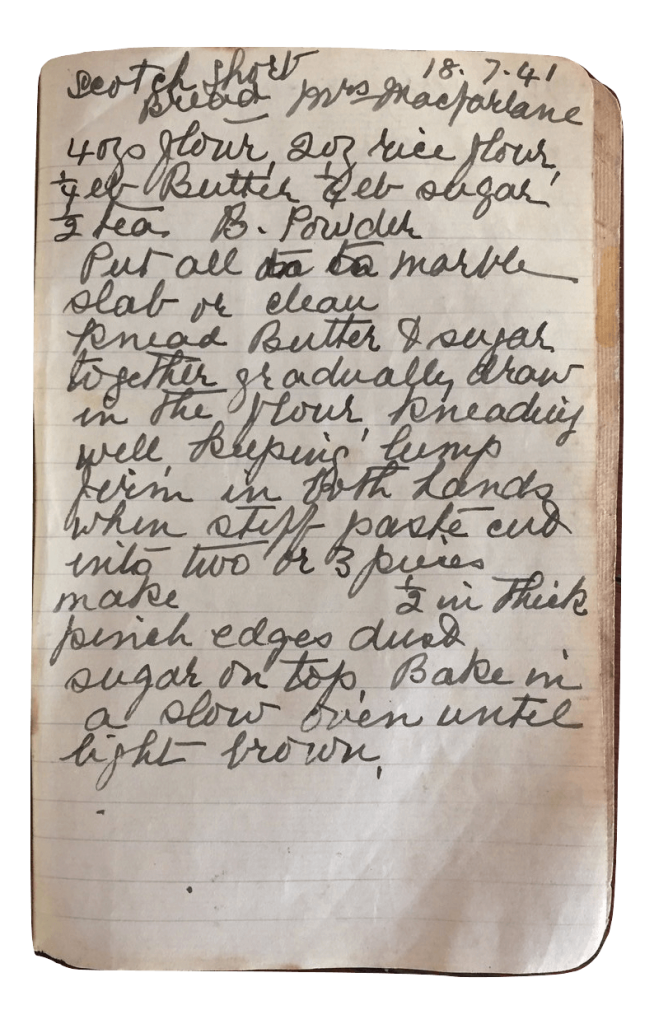 Scotch Short 18.7.41
Bread Mrs Macfarlane
4ozs flour, 2oz rice flour,
1/4 lb Butter 1/4 lb sugar
1/2 tea B. Powder
Put all to marble
slab or clean
knead Butter & sugar
together gradually draw
in the flour, kneading
well, keeping lump
firm in both hands
when stiff paste cut
into two or 3 pieces
make 1/2 in thick
pinch edges dust
sugar on top, Bake in
a slow oven until
light brown,